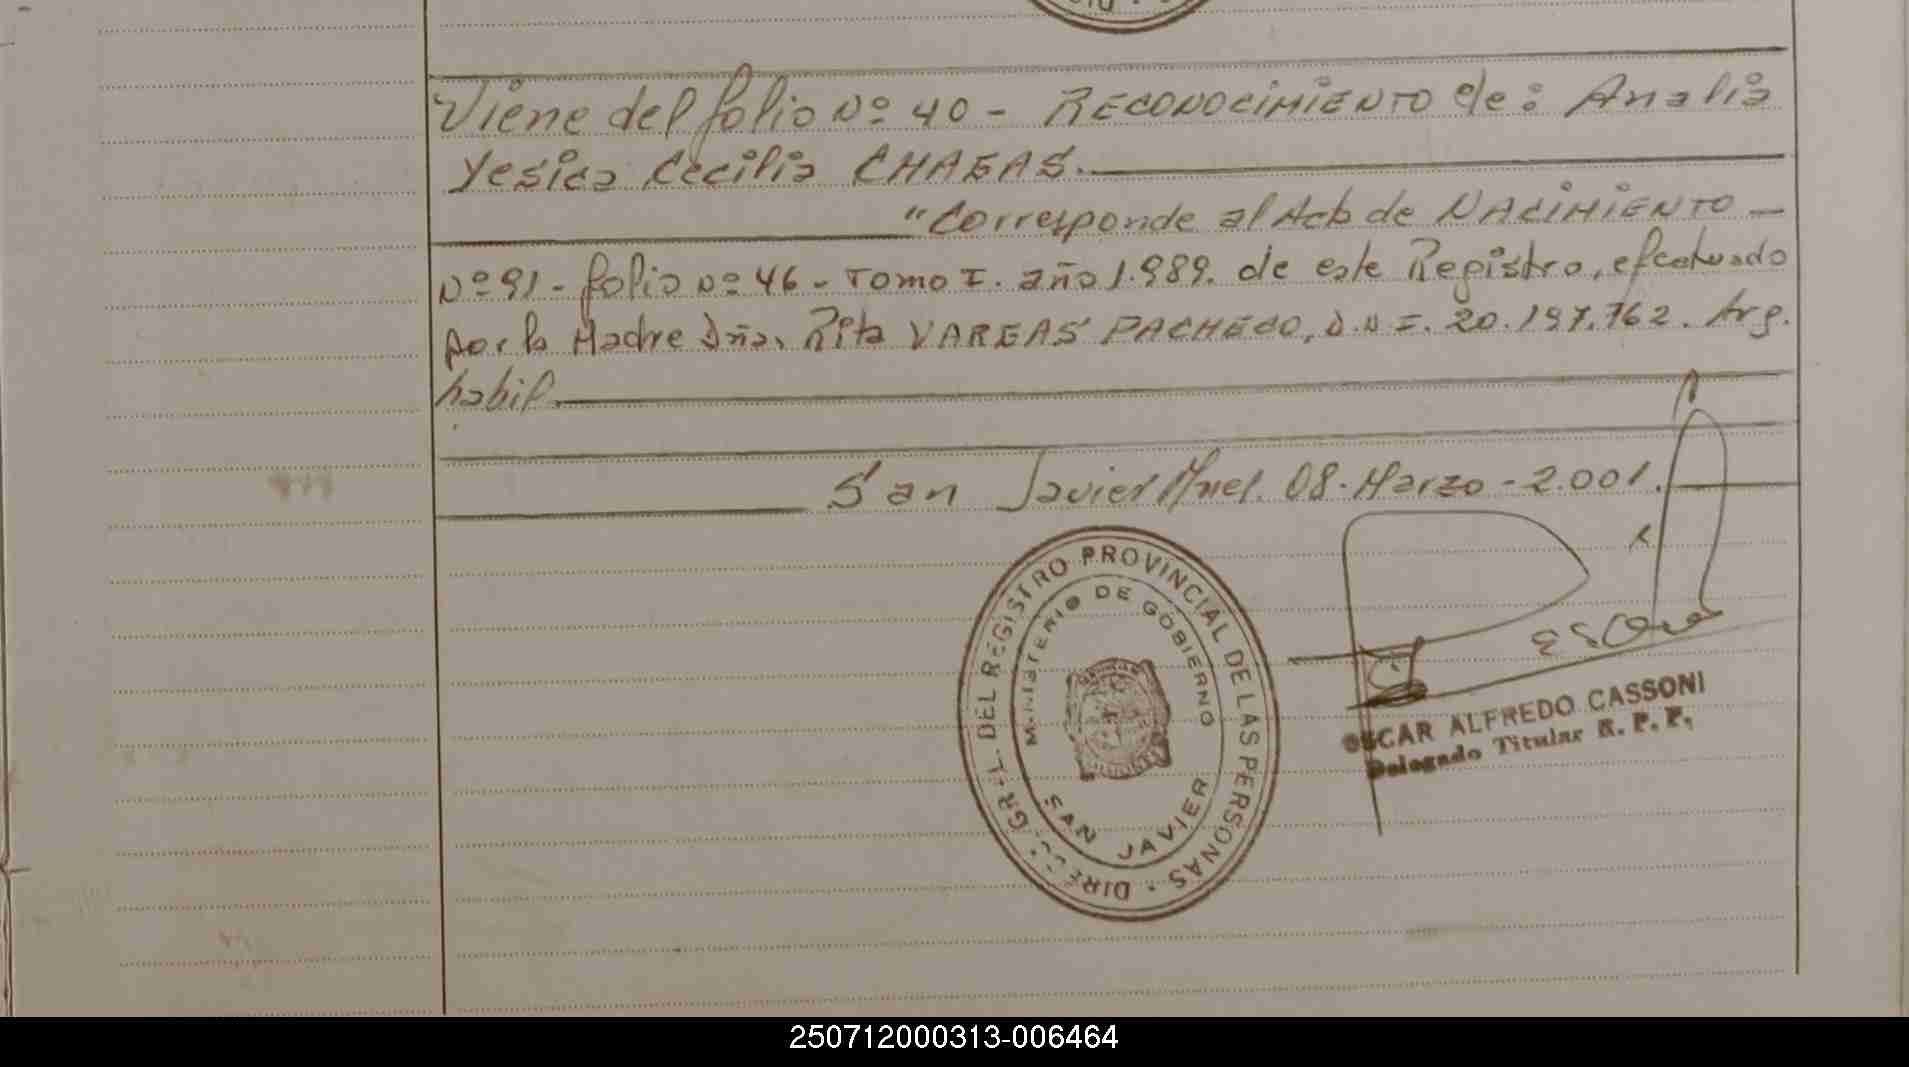 Viene del folio Nº 40 - RECONOCIMIENTO de: Analia
Yesica Cecilia CHAGAS.
"Corresponde al Acta de NACIMIENTO -
Nº 91 - folio Nº 46 - Tomo I. año 1.989. de este Registro, efectuado
por la Madre Dña. Rita VARGAS PACHECO, D.N.I. 20.197.762. Arg.
habil.
San Javier Mnes. 08. Marzo - 2.001.
DIRECC. GRAL. DEL REGISTRO PROVINCIAL DE LAS PERSONAS
MINISTERIO DE GOBIERNO
SAN JAVIER
OSCAR ALFREDO CASSONI
Delegado Titular R. P. P.
250712000313-006464